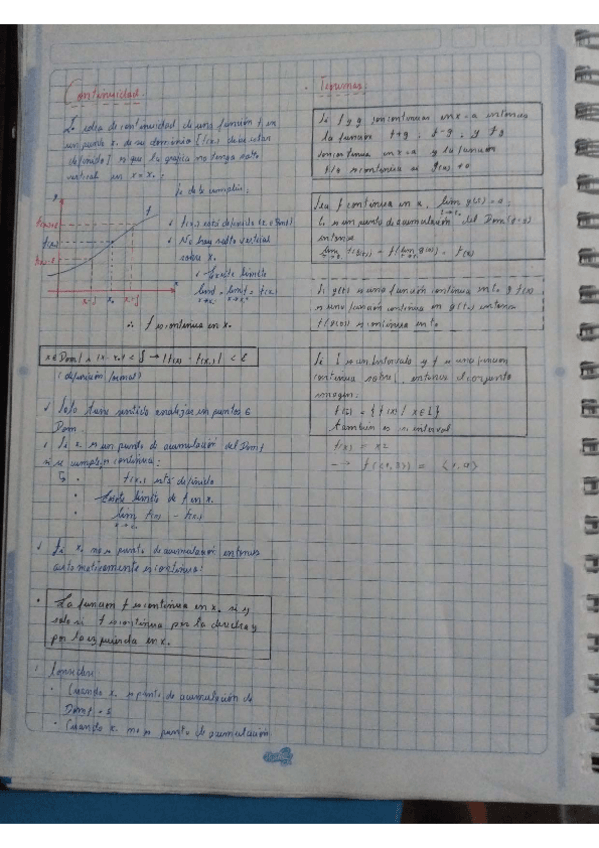 Continuidad
La idea de continuidad de una función f en
un punto x₀ de su dominio [f(x₀) debe estar
definido] es que la grafica no tenga salto
vertical en x = x₀:
Se debe cumplir:
f(x₀) está definido (x₀ ∈ Dom f)
No hay salto vertical
sobre x₀
Existe límite
∴ f es continua en x₀
x ∈ Dom f ∧ |x - x₀| < δ → |f(x) - f(x₀)| < ε
(definición formal)
Solo tiene sentido analizar en puntos ∈
Dom
Si x₀ es un punto de acumulación del Dom f
si se cumple continua:
f(x₀) está definido
Existe límite de f en x₀
lim f(x) = f(x₀)
Si x₀ no es punto de acumulación entonces
automáticamente es continua:
La función f es continua en x₀ si y
solo si f es continua por la derecha y
por la izquierda en x₀
Cuando x₀ es punto de acumulación de
Dom f
Cuando x₀ no es punto de acumulación
Teoremas
Si f y g son continuas en x = a entonces
la función f+g, f-g, y fg
son continua en x = a y la función
f/g es continua si g(a) ≠ 0
Sea f continua en x,
es un punto de acumulación del
entonces
Si g(t) es una función continua en t₀ y f(x)
es una función continua en g(t₀) entonces
f(g(t)) es continua en t₀
Si I es un Intervalo y f es una funcion
continua sobre I, entonces el conjunto
imagen:
f(I) = { f(x) / x ∈ I }
también es
f(x) = x2